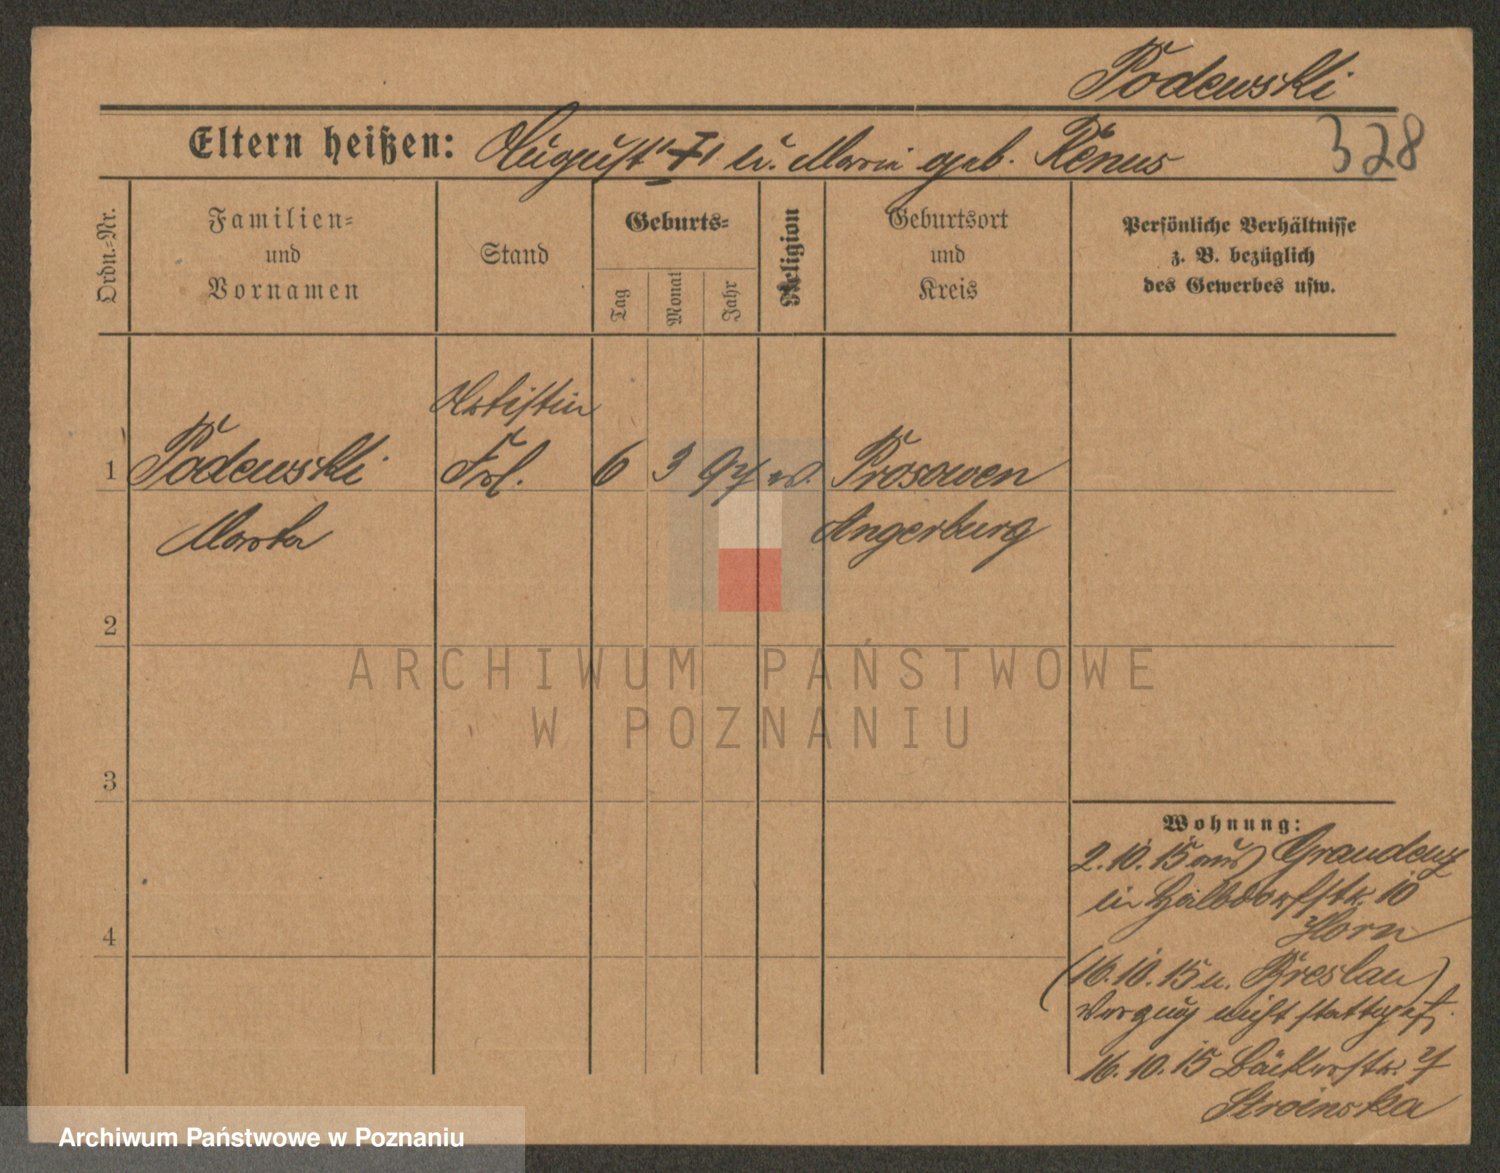 Podewski
Eltern heißen: August u. Marie geb. Renus
328
Ordn.-Nr.
Familien-
und
Vornamen
Stand
Geburts-
Tag
Monat
Jahr
Religion
Geburtsort
und
Kreis
Persönliche Verhältnisse
z. B. bezüglich
des Gewerbes usw.
Artistin
1 Podewski Frl. 6 3 97 ev. Prosowen
Martha Angerburg
2
3
4
ARCHIWUM PAŃSTWOWE
W POZNANIU
Wohnung:
2.10.15 aus Graudenz
in Halbdorfstr. 10
Horn
(16.10.15 n. Breslau)
Verzug nicht stattgef.
16.10.15 Bäckerstr. 7
Stroinska
Archiwum Państwowe w Poznaniu